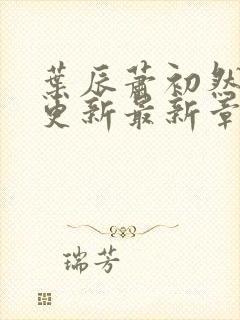 葉辰蕭初然
更新最新章
瑞芳